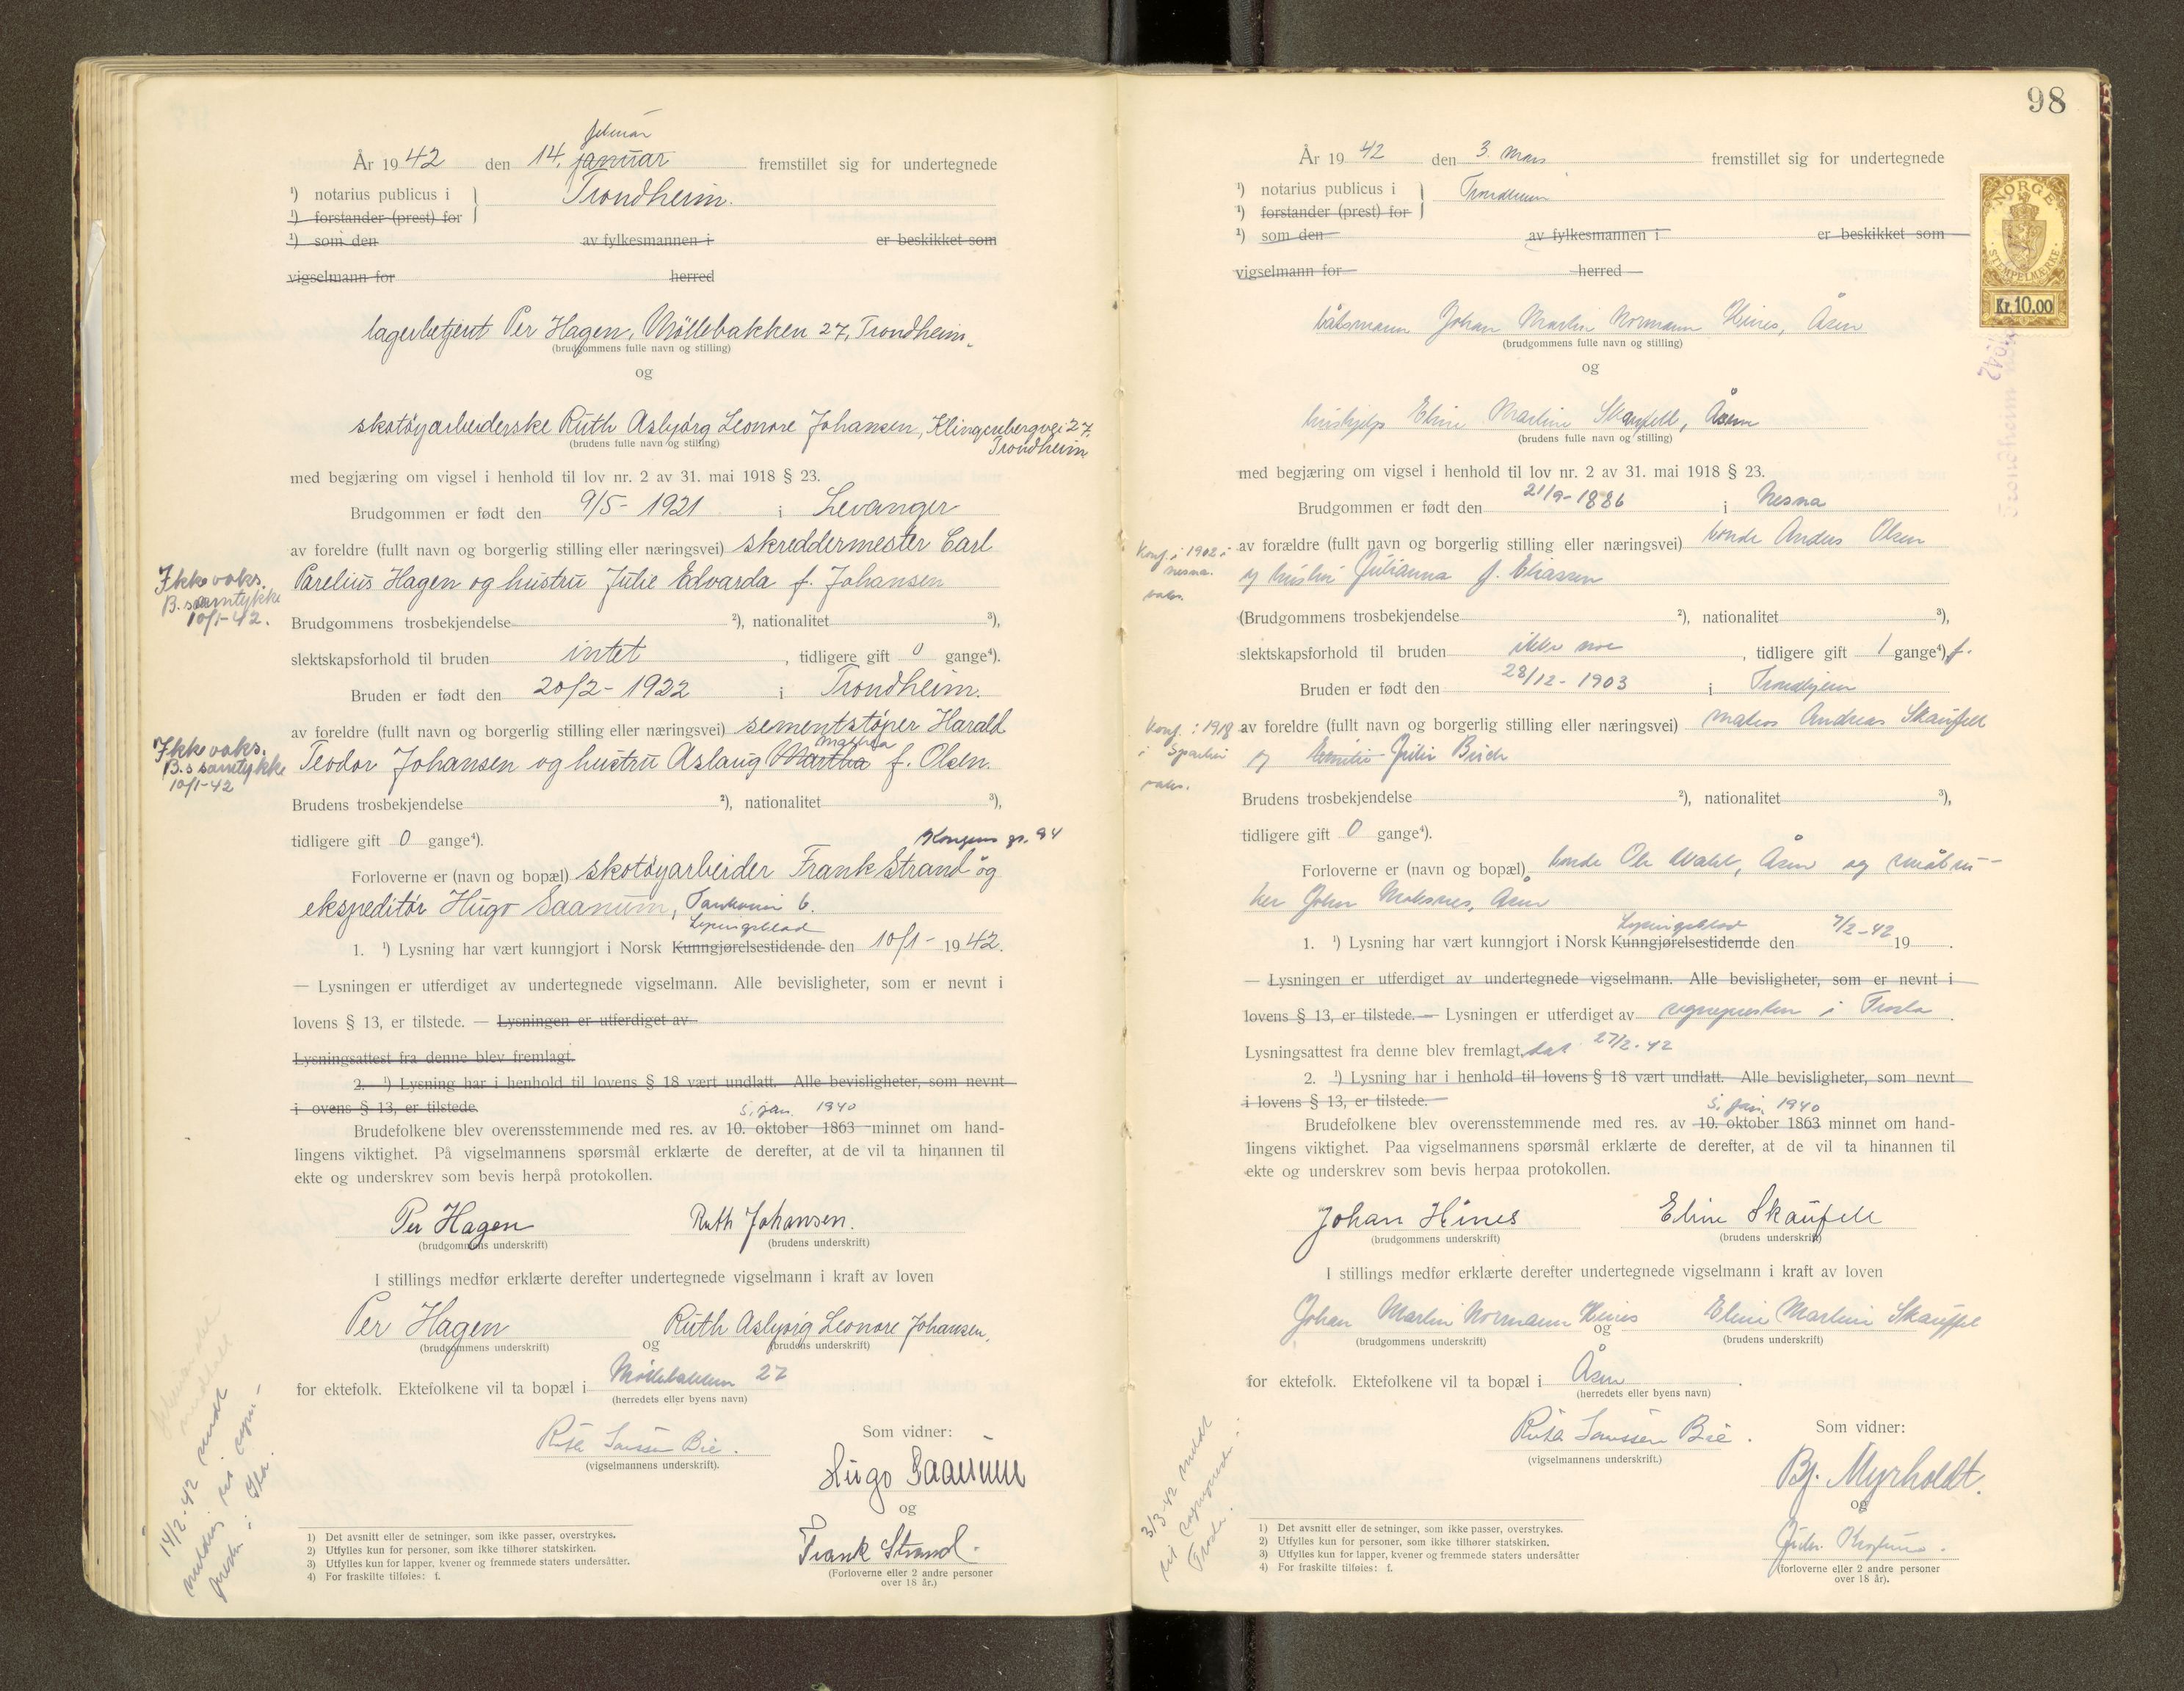 februar
År 1942 den 14. januar fremstillet sig for undertegnede
¹) notarius publicus i } Trondheim.
¹) forstander (prest) for
¹) som den av fylkesmannen i er beskikket som
vigselmann for herred
lagerbetjent Per Hagen, Møllebakken 27, Trondheim.
(brudgommens fulle navn og stilling)
og
skotøyarbeiderske Ruth Asbjørg Leonore Johansen, Klingenbergvei 27,
Trondheim
(brudens fulle navn og stilling)
med begjæring om vigsel i henhold til lov nr. 2 av 31. mai 1918 § 23.
Brudgommen er født den 9/5 - 1921 i Levanger
av foreldre (fullt navn og borgerlig stilling eller næringsvei) skreddermester Carl
Parelius Hagen og hustru Julie Edvarda f. Johansen
Ikke vaks.
B. samtykke
10/1-42.
Brudgommens trosbekjendelse ²), nationalitet ³),
slektskapsforhold til bruden intet, tidligere gift 0 gange⁴).
Bruden er født den 20/2 - 1922 i Trondheim.
av foreldre (fullt navn og borgerlig stilling eller næringsvei) sementstøper Harald
Mathea
Teodor Johansen og hustru Aslaug Martha f. Olsen.
Ikke vaks.
B.s samtykke
10/1-42
Brudens trosbekjendelse ²), nationalitet ³),
tidligere gift 0 gange⁴).
Kongens gt. 94
Forloverne er (navn og bopæl) skotøyarbeider Frank Strand og
ekspeditør Hugo Saanum, 6.
Lysingsblad
1. ¹) Lysning har vært kunngjort i Norsk Kunngjørelsestidende den 10/1 - 1942.
— Lysningen er utferdiget av undertegnede vigselmann. Alle bevisligheter, som er nevnt i
lovens § 13, er tilstede. — Lysningen er utferdiget av
Lysningsattest fra denne blev fremlagt.
2. ¹) Lysning har i henhold til lovens § 18 vært undlatt. Alle bevisligheter, som nevnt
i ovens § 13, er tilstede.
5. jan. 1940
Brudefolkene blev overensstemmende med res. av 10. oktober 1863 minnet om hand-
lingens viktighet. På vigselmannens spørsmål erklærte de derefter, at de vil ta hinannen til
ekte og underskrev som bevis herpå protokollen.
Per Hagen Ruth Johansen.
(brudgommens underskrift) (brudens underskrift)
I stillings medfør erklærte derefter undertegnede vigselmann i kraft av loven
Per Hagen og Ruth Asbjørg Leonore Johansen.
(brudgommens underskrift) (brudens underskrift)
for ektefolk. Ektefolkene vil ta bopæl i Møllebakken 27
(herredets eller byens navn)
Ruth Sanssen Bie.
(vigselmannens underskrift).
Som vidner:
Hugo Saanum
og
Frank Strand.
(Forloverne eller 2 andre personer
over 18 år.)
14/2-42 sendt
melding til sogne-
presten i Ila.
1) Det avsnitt eller de setninger, som ikke passer, overstrykes.
2) Utfylles kun for personer, som ikke tilhører statskirken.
3) Utfylles kun for lapper, kvener og fremmede staters undersåtter.
4) For fraskilte tilføles: f.
98
År 1942 den 3. mars fremstillet sig for undertegnede
¹) notarius publicus i } Trondheim
¹) forstander (prest) for
¹) som den av fylkesmannen i er beskikket som
vigselmann for herred
NORGE
STEMPELMERKE
Kr. 10.00
båtsmann Johan Martin Normann Hines, Åsen
(brudgommens fulle navn og stilling)
og
hushjelp Eline Martine Skaufell, Åsen
(brudens fulle navn og stilling)
med begjæring om vigsel i henhold til lov nr. 2 av 31. mai 1918 § 23.
Brudgommen er født den 21/9 - 1886 i Nesna
av forældre (fullt navn og borgerlig stilling eller næringsvei) bonde Anders Olsen
og hustru Julianna f. Eliassen
Konf. i 1902 i
Nesna.
vaks.
(Brudgommens trosbekjendelse ²), nationalitet ³),
slektskapsforhold til bruden ikke noe, tidligere gift 1 gange⁴) f.
Bruden er født den 28/12 - 1903 i Trondhjem
av foreldre (fullt navn og borgerlig stilling eller næringsvei) matros Andreas Skaufell
og Emilie Julie Busch
Konf. : 1918
i Sparbu
vaks.
Brudens trosbekjendelse ²), nationalitet ³),
tidligere gift 0 gange⁴).
Forloverne er (navn og bopæl) bonde Ole Vatn, Åsen og småbru-
ker John Moksnes, Åsen
Lysingsblad
1. ¹) Lysning har vært kunngjort i Norsk Kunngjørelsestidende den 7/2-42 19 .
— Lysningen er utferdiget av undertegnede vigselmann. Alle bevisligheter, som er nevnt i
lovens § 13, er tilstede. — Lysningen er utferdiget av sognepresten i Frosta.
Lysningsattest fra denne blev fremlagt, dat 27/2-42
2. ¹) Lysning har i henhold til lovens § 18 vært undlatt. Alle bevisligheter, som nevnt
i lovens § 13, er tilstede.
5. jan. 1940
Brudefolkene blev overensstemmende med res. av 10. oktober 1863 minnet om hand-
lingens viktighet. Paa vigselmannens spørsmål erklærte de derefter, at de vil ta hinannen til
ekte og underskrev som bevis herpaa protokollen.
Johan Hines Eline Skaufell
(brudgommens underskrift) (brudens underskrift)
I stillings medfør erklærte derefter undertegnede vigselmann i kraft av loven
Johan Martin Normann Hines og Eline Martine Skaufell
(brudgommens underskrift) (brudens underskrift)
for ektefolk. Ektefolkene vil ta bopæl i Åsen.
(herredets eller byens navn)
Ruth Sanssen Bie.
(vigselmannens underskrift.)
Som vidner:
Bj. Myrholdt.
og
(forloverne eller 2 andre personer
over 18 år).
3/3-42 meldt
til sogneprest
Frosta.
1) Det avsnitt eller de setninger, som ikke passer, overstrykes.
2) Utfylles kun for personer, som ikke tilhører statskirken.
3) Utfylles kun for lapper, kvener og fremmede staters undersåtter
4) For fraskilte tilføles: f.